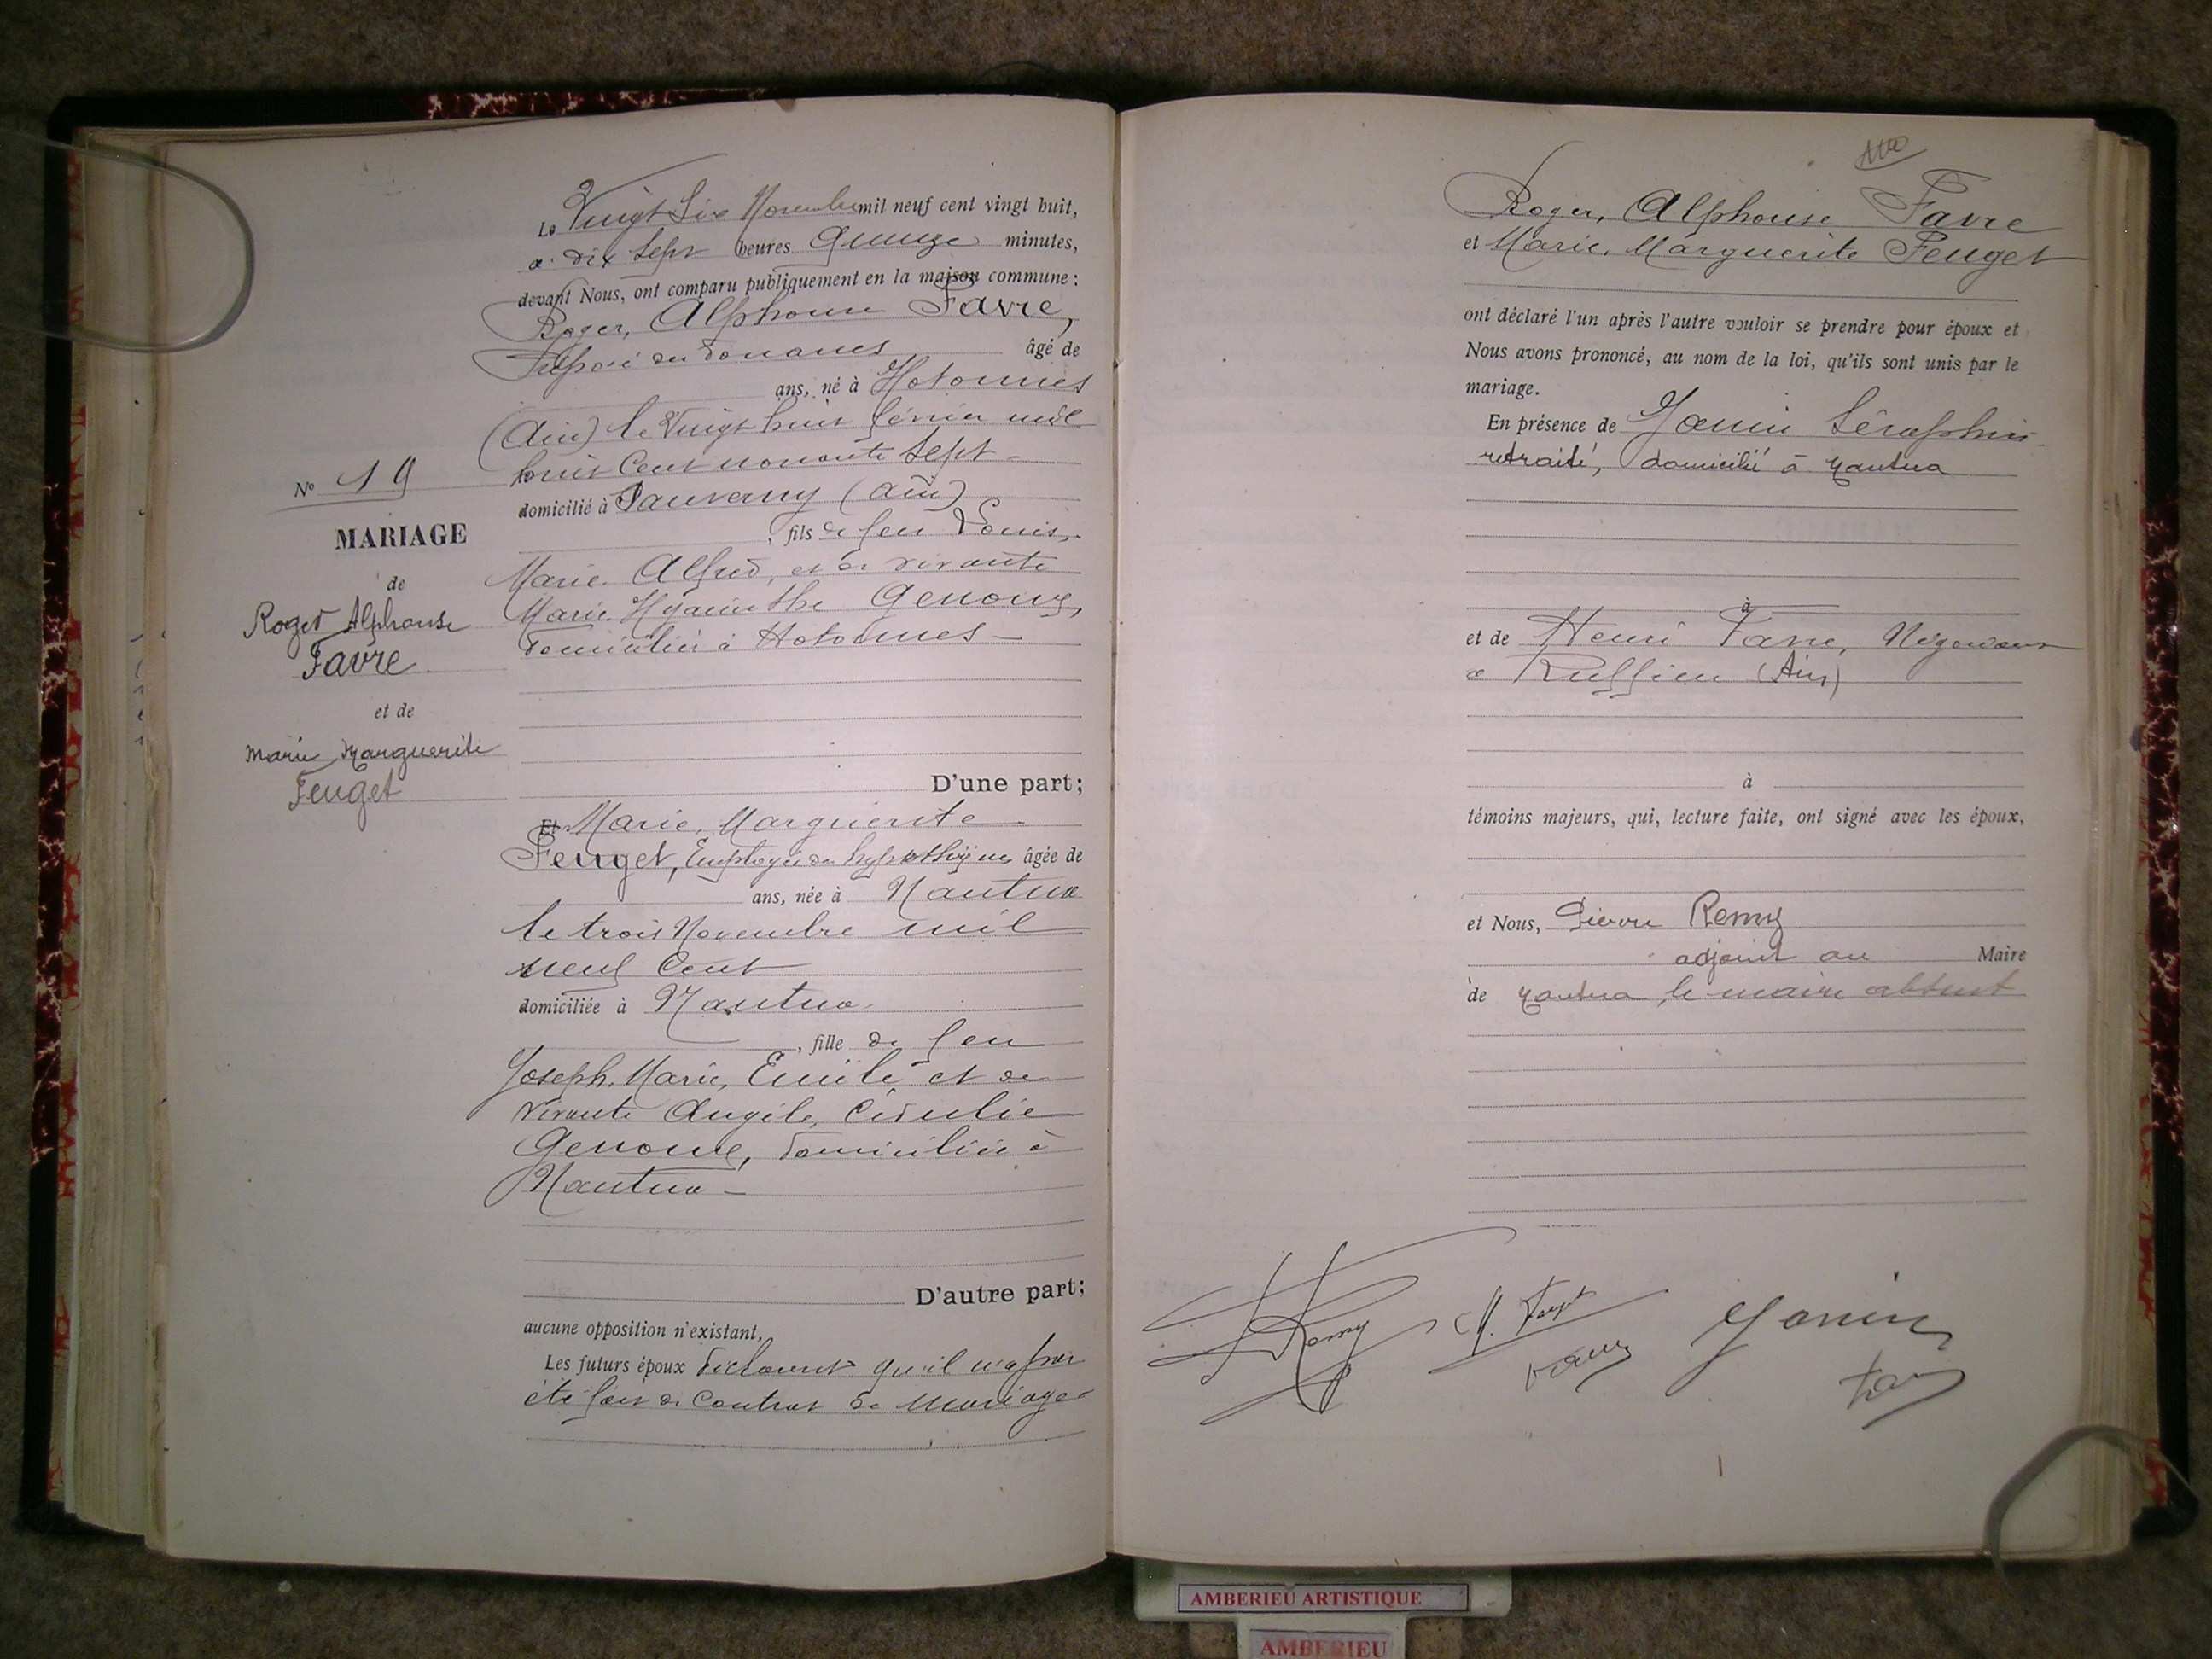 Le Vingt Six Novembre mil neuf cent vingt huit,
à dix sept heures Quinze minutes,
devant Nous, ont comparu publiquement en la maison commune :
Roger, Alphonse Favre,
Préposé des Douanes âgé de
ans, né à Hotonnes
(Ain) le Vingt huit février mil
huit Cent nonante Sept
domicilié à Sauverny (Ain)
, fils de feu Louis,
Marie Alfred, et de vivante
Marie Hyacinthe Genoux,
domiciliée à Hotonnes
No 19
MARIAGE
de
Roger Alphonse
Favre
et de
Marie Marguerite
Feuget
D'une part;
Et Marie, Marguerite
Feuget, Employée des hypothèques âgée de
ans, née à Nantua
le trois Novembre mil
neuf Cent
domiciliée à Nantua
, fille de feu
Joseph, Marie, Emile et de
vivante Angèle,
Genoux, domiciliée à
Nantua
D'autre part;
aucune opposition n'existant,
Les futurs époux déclarent qu'il n'a pas
été fait de Contrat de Mariage
Roger, Alphonse Favre
et Marie, Marguerite Feuget
ont déclaré l'un après l'autre vouloir se prendre pour époux et
Nous avons prononcé, au nom de la loi, qu'ils sont unis par le
mariage.
En présence de Janin Séraphin
retraité, domicilié à Nantua
à
et de Henri Favre, Négociant
à Ruffieu (Ain)
à
témoins majeurs, qui, lecture faite, ont signé avec les époux,
et Nous, Pierre Remy
adjoint au Maire
de Nantua, le maire absent
Remy M. Feuget Janin
Favre
AMBERIEU ARTISTIQUE
AMBERIEU